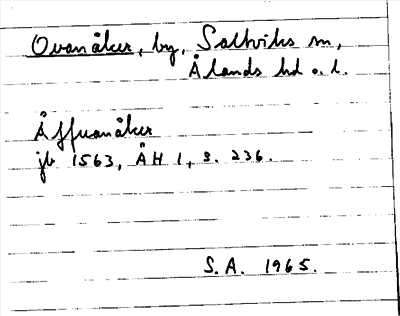 Ovanåker, by, Saltviks sn,
Ålands hd o. l.
Åffuanåker
jb 1563, ÅH 1, s. 236.
S.A. 1965.